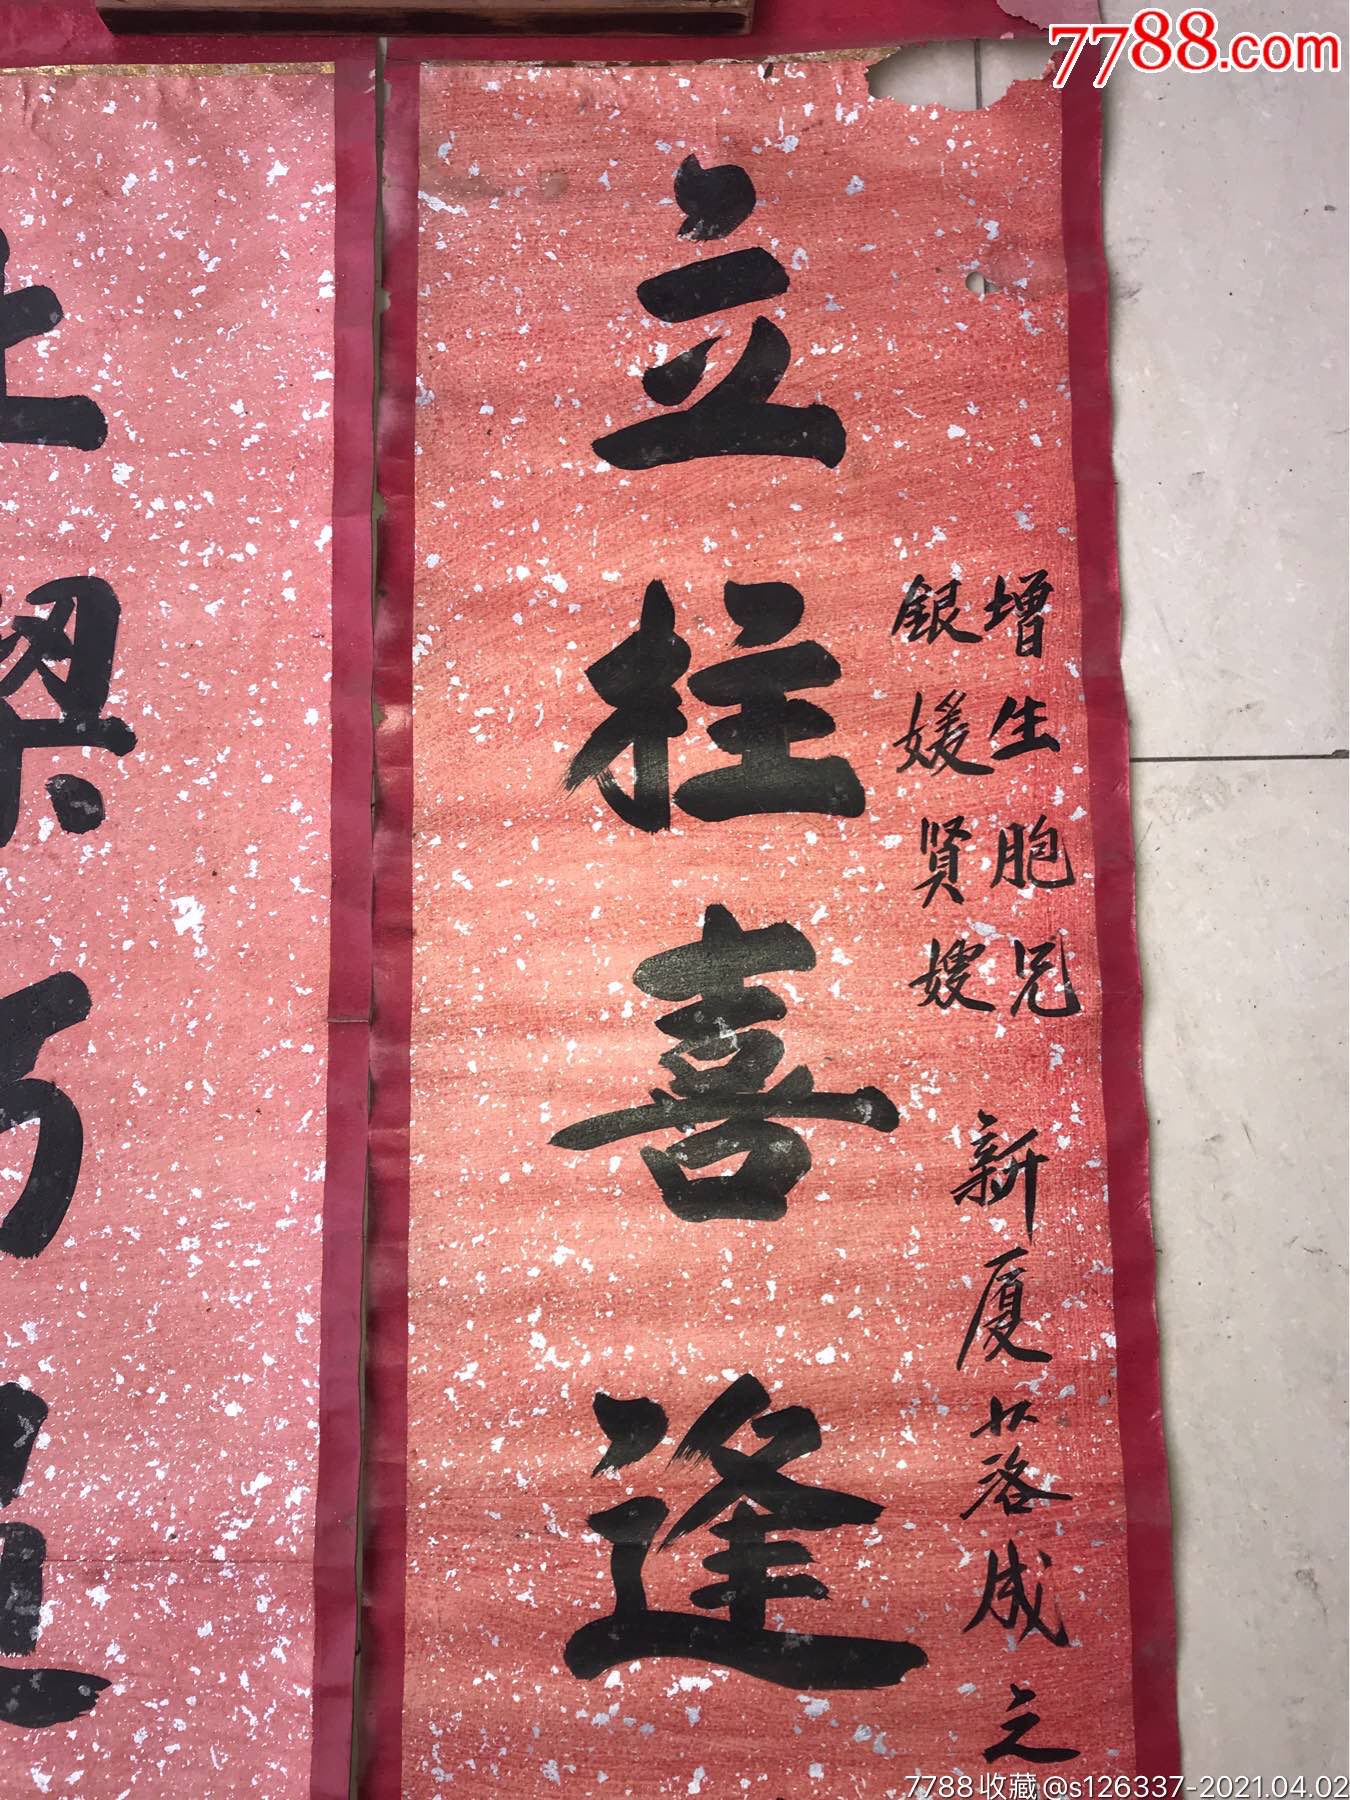 7788.com
增生胞兄
銀媛贤嫂
新厦落成之
立柱喜逢
7788收藏@s126337-2021.04.02